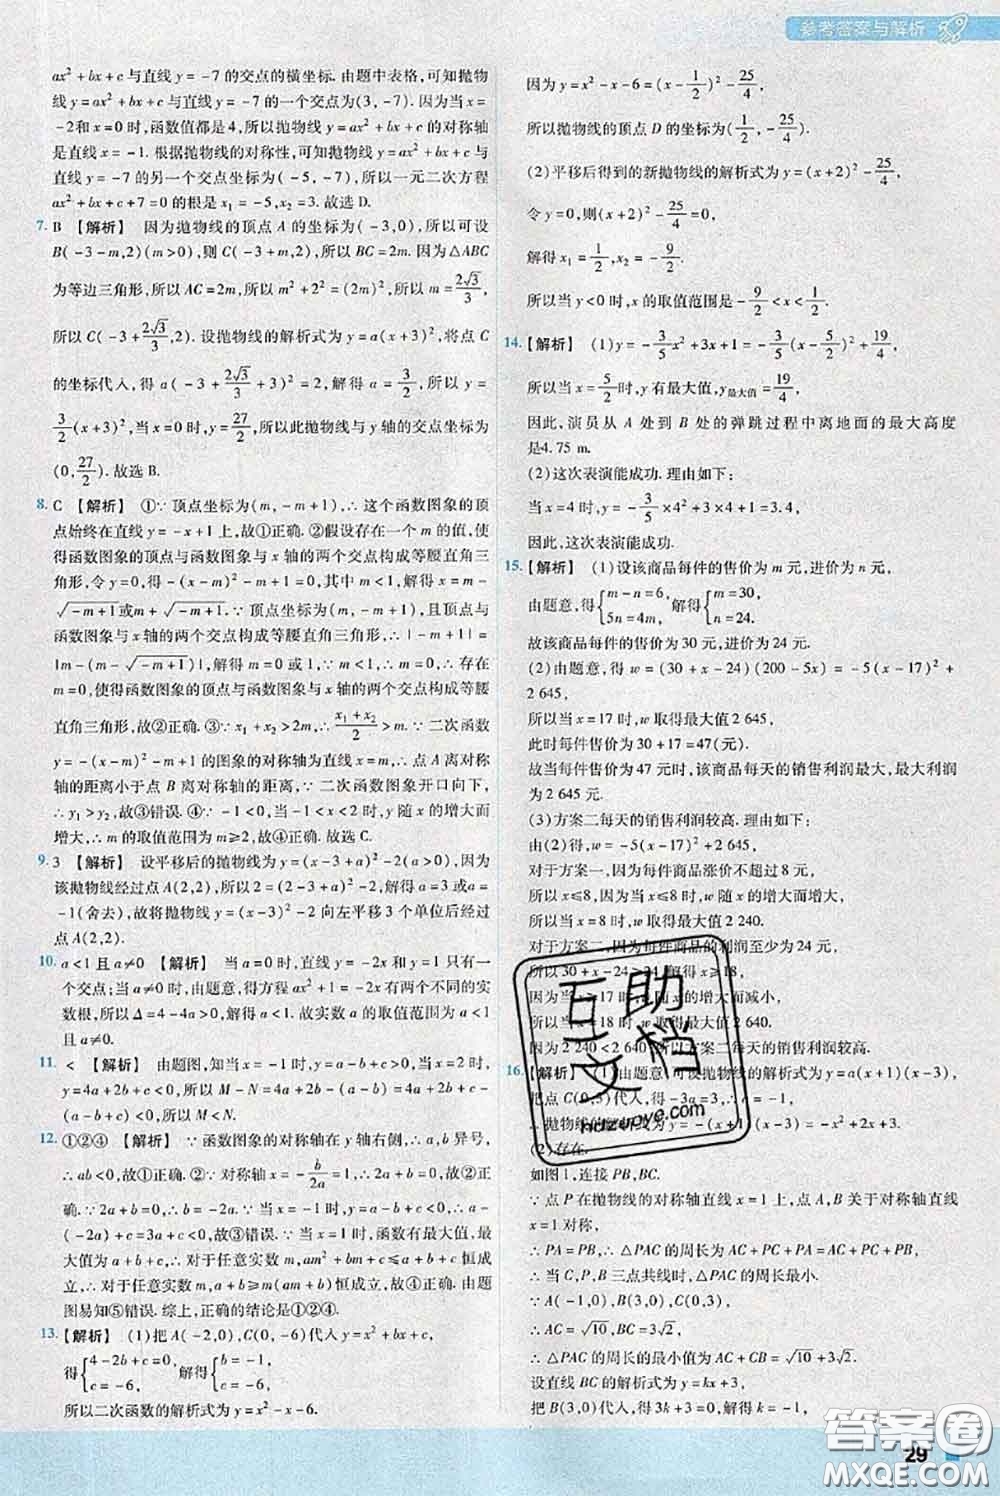 参考答案与解析
ax²+bx+c与直线y=-7的交点的横坐标. 由题中表格,可知抛物
线y=ax²+bx+c与直线y=-7的一个交点为(3,-7). 因为当x=
-2和x=0时,函数值都是4,所以抛物线y=ax²+bx+c的对称轴
是直线x=-1. 根据抛物线的对称性,可知抛物线y=ax²+bx+c与
直线y=-7的另一个交点坐标为(-5,-7),所以一元二次方程
ax²+bx+c+7=0的根是x₁=-5,x₂=3. 故选D.
7. B 【解析】 因为抛物线的顶点A的坐标为(-3,0),所以可设
B(-3-m,2)(m>0),则C(-3+m,2),所以BC=2m. 因为△ABC
为等边三角形,所以AC=2m,所以m²+2²=(2m)²,所以m=2√3/3,
所以C(-3+2√3/3,2). 设抛物线的解析式为y=a(x+3)²,将点C
的坐标代入,得a(-3+2√3/3+3)²=2,解得a=3/2,所以y=
3/2(x+3)²,当x=0时,y=27/2,所以此抛物线与y轴的交点坐标为
(0,27/2). 故选B.
8. C 【解析】 ①∵顶点坐标为(m,-m+1),∴这个函数图象的顶
点始终在直线y=-x+1上,故①正确. ②假设存在一个m的值,使
得函数图象的顶点与函数图象与x轴的两个交点构成等腰直角三
角形,令y=0,得-(x-m)²-m+1=0,其中m≤1,解得x=m-
√-m+1或m+√-m+1. ∵顶点坐标为(m,-m+1),且顶点与
函数图象与x轴的两个交点构成等腰直角三角形,∴|-m+1|=
|m-(m-√-m+1)|,解得m=0或1. ∵m<1,∴m=0,∴存在
m=0,使得函数图象的顶点与函数图象与x轴的两个交点构成等腰
直角三角形,故②正确. ③∵x₁+x₂>2m,∴(x₁+x₂)/2>m. ∵二次函数
y=-(x-m)²-m+1的图象的对称轴为直线x=m,∴点A离对称
轴的距离小于点B离对称轴的距离,∵二次函数图象开口向下,
∴y₁>y₂,故③错误. ④∵-1<0,当-1<x<2时,y随x的增大而
增大,∴m的取值范围为m≥2,故④正确. 故选C.
9. 3 【解析】 设平移后的抛物线为y=(x-3+a)²-2(a>0),因为
该抛物线经过点A(2,2),所以2=(2-3+a)²-2,解得a=3或a=
-1(舍去),故将抛物线y=(x-3)²-2向左平移3个单位后经过
点A(2,2).
10. a<1且a≠0 【解析】 当a=0时,直线y=-2x和y=1只有一
个交点;当a≠0时,由题意,得方程ax²+1=-2x有两个不同的实
数根,所以Δ=4-4a>0,解得a<1. 故实数a的取值范围为a<1
且a≠0.
11. < 【解析】 由题图,知当x=-1时,y=a-b+c>0,当x=2时,
y=4a+2b+c<0,所以M-N=4a+2b-(a-b)=4a+2b+c-
(a-b+c)<0,所以M<N.
12. ①②④ 【解析】 ∵函数图象的对称轴在y轴右侧,∴a,b异号,
∴ab<0,故①正确. ②∵对称轴x=-b/2a=1,∴2a+b=0,故②正
确. ∵2a+b=0,∴b=-2a. ∵当x=-1时,y=a-b+c<0,∴a-
(-2a)+c=3a+c<0,故③错误. ∵当x=1时,函数有最大值,最
大值为a+b+c,∴对于任意实数m,am²+bm+c≤a+b+c恒成
立,∴对于任意实数m,a+b≥m(am+b)恒成立,故④正确. 由题
图易知⑤错误. 综上,正确的结论是①②④.
13. 【解析】 (1)把A(-2,0),C(0,-6)代入y=x²+bx+c,
得{4-2b+c=0,c=-6, 解得{b=-1,c=-6,
所以二次函数的解析式为y=x²-x-6.
因为y=x²-x-6=(x-1/2)²-25/4,
所以抛物线的顶点D的坐标为(1/2,-25/4).
(2)平移后得到的新抛物线的解析式为y=(x+2)²-25/4,
令y=0,则(x+2)²-25/4=0,
解得x₁=1/2,x₂=-9/2.
所以当y<0时,x的取值范围是-9/2<x<1/2.
14. 【解析】 (1)y=-3/5x²+3x+1=-3/5(x-5/2)²+19/4,
所以当x=5/2时,y有最大值,y最大值=19/4.
因此,演员从A处到B处的弹跳过程中离地面的最大高度
是4.75 m.
(2)这次表演能成功. 理由如下:
当x=4时,y=-3/5×4²+3×4+1=3.4,
因此,这次表演能成功.
15. 【解析】 (1)设该商品每件的售价为m元,进价为n元,
由题意,得{m-n=6,5n=4m, 解得{m=30,n=24.
故该商品每件的售价为30元,进价为24元.
(2)由题意,得w=(30+x-24)(200-5x)=-5(x-17)²+
2 645,
所以当x=17时,w取得最大值2 645,
此时每件售价为30+17=47(元).
故当每件售价为47元时,该商品每天的销售利润最大,最大利润
为2 645元.
(3)方案二每天的销售利润较高. 理由如下:
由(2)得,w=-5(x-17)²+2 645,
对于方案一,因为每件商品涨价不超过8元,
所以x≤8,因为当x<17时,w随x的增大而增大,
所以当x=8时,w取得最大值2 240.
对于方案二,因为每件商品的利润至少为24元,
所以30+x-24≥24,解得x≥18,
因为当x≥17时,w随x的增大而减小,
所以当x=18时,w取得最大值2 640.
因为2 240<2 640,所以方案二每天的销售利润较高.
16. 【解析】 (1)由题意,可设抛物线的解析式为y=a(x+1)(x-3),
把点C(0,3)代入,得-3a=3,∴a=-1,
∴抛物线的解析式为y=-(x+1)(x-3)=-x²+2x+3.
(2)存在.
如图1,连接PB,BC.
∵点P在抛物线的对称轴直线x=1上,点A,B关于对称轴直线
x=1对称,
∴PA=PB,∴△PAC的周长为AC+PC+PA=AC+PC+PB,
∴当C,P,B三点共线时,△PAC的周长最小.
∵A(-1,0),B(3,0),C(0,3),
∴AC=√10,BC=3√2,
∴△PAC的周长的最小值为AC+CB=√10+3√2.
设直线BC的解析式为y=kx+3,
把B(3,0)代入,得0=3k+3,解得k=-1,
29
互助文档
hdzuoye.com
答案圈
MXQE.COM